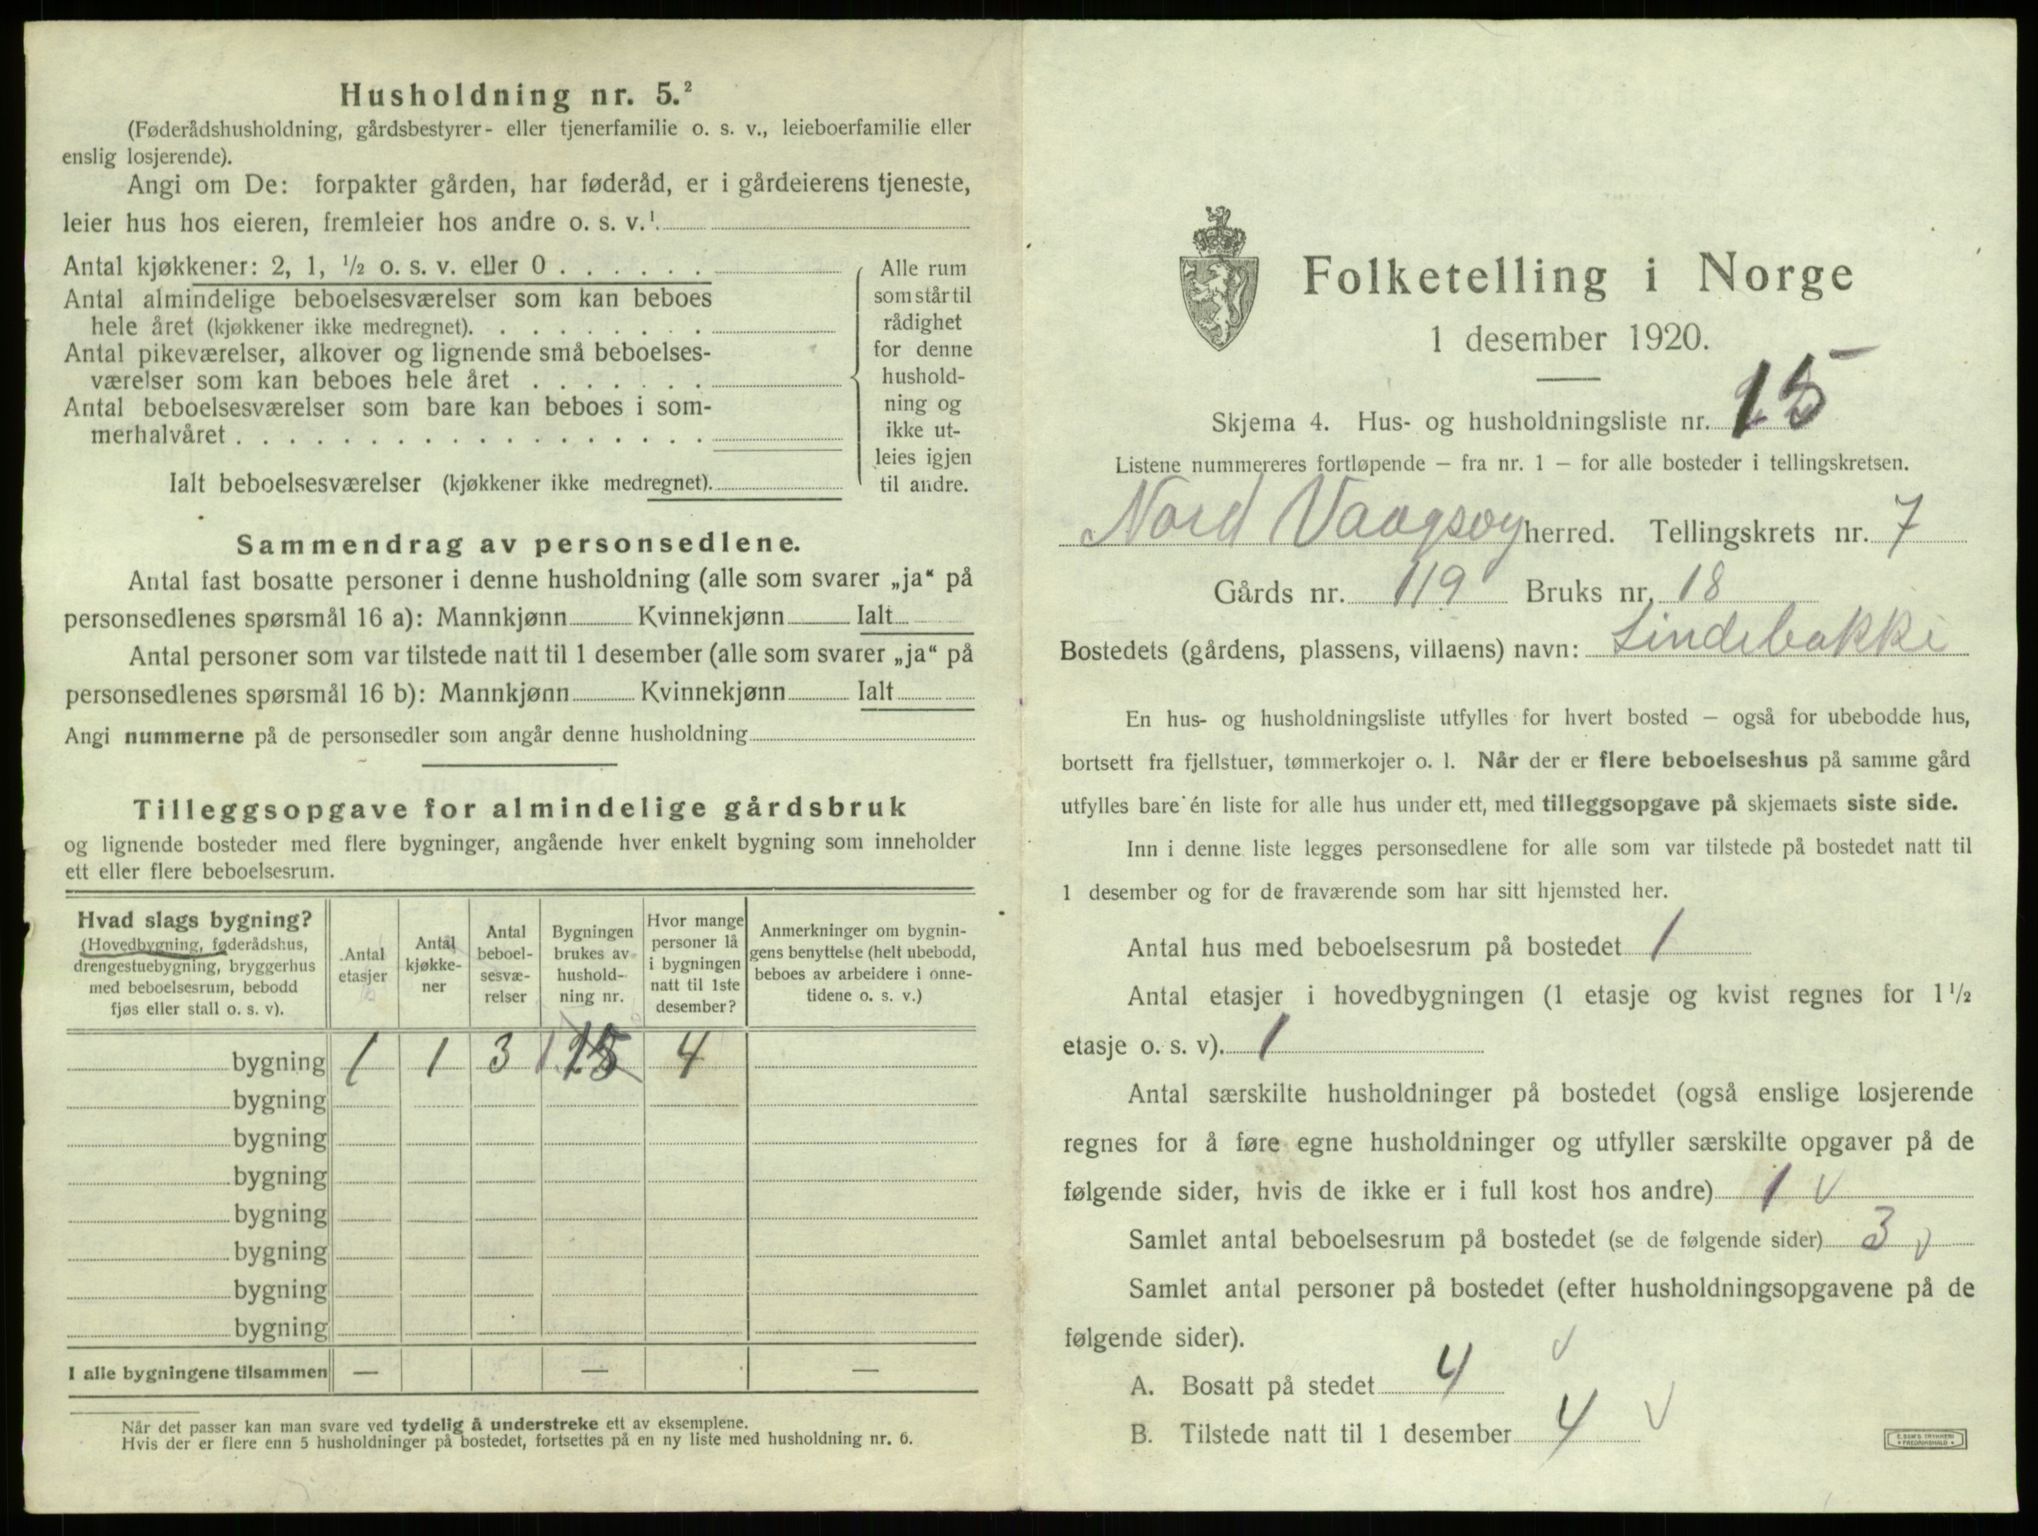 Husholdning nr. 5.²
(Føderådshusholdning, gårdsbestyrer- eller tjenerfamilie o. s. v., leieboerfamilie eller
enslig losjerende).
Angi om De: forpakter gården, har føderåd, er i gårdeierens tjeneste,
leier hus hos eieren, fremleier hos andre o. s. v.¹
Antal kjøkkener: 2, 1, ½ o. s. v. eller 0 . . . . . .
Antal almindelige beboelsesværelser som kan beboes
hele året (kjøkkener ikke medregnet). . . . . . . . .
Antal pikeværelser, alkover og lignende små beboelses-
værelser som kan beboes hele året . . . . . . .
Antal beboelsesværelser som bare kan beboes i som-
merhalvåret . . . . . . . . . . . . . . . . . .
Ialt beboelsesværelser (kjøkkener ikke medregnet).
Alle rum
som står til
rådighet
for denne
hushold-
ning og
ikke ut-
leies igjen
til andre.
Sammendrag av personsedlene.
Antal fast bosatte personer i denne husholdning (alle som svarer „ja“ på
personsedlenes spørsmål 16 a): Mannkjønn Kvinnekjønn Ialt
Antal personer som var tilstede natt til 1 desember (alle som svarer „ja“ på
personsedlenes spørsmål 16 b): Mannkjønn Kvinnekjønn Ialt
Angi nummerne på de personsedler som angår denne husholdning
Tilleggsopgave for almindelige gårdsbruk
og lignende bosteder med flere bygninger, angående hver enkelt bygning som inneholder
ett eller flere beboelsesrum.
Hvad slags bygning?
(Hovedbygning, føderådshus,
drengestuebygning, bryggerhus
med beboelsesrum, bebodd
fjøs eller stall o. s. v).
Antal
etasjer
Antal
kjøkke-
ner
Antal
beboel-
sesvæ-
relser
Bygningen
brukes av
hushold-
ning nr.
Hvor mange
personer lå
i bygningen
natt til 1ste
desember?
Anmerkninger om bygnin-
gens benyttelse (helt ubebodd,
beboes av arbeidere i onne-
tidene o. s. v.)
bygning 1 1 3 1 15 4
bygning
bygning
bygning
bygning
bygning
bygning
bygning
I alle bygningene tilsammen — — —
Når det passer kan man svare ved tydelig å understreke ett av eksemplene.
Hvis der er flere enn 5 husholdninger på bostedet, fortsettes på en ny liste med husholdning nr. 6.
Folketelling i Norge
1 desember 1920.
Skjema 4. Hus- og husholdningsliste nr. 15
Listene nummereres fortløpende – fra nr. 1 – for alle bosteder i tellingskretsen.
Nord Vaagsøy herred. Tellingskrets nr. 7
Gårds nr. 119 Bruks nr. 18
Bostedets (gårdens, plassens, villaens) navn: Lindebakke
En hus- og husholdningsliste utfylles for hvert bosted – også for ubebodde hus,
bortsett fra fjellstuer, tømmerkojer o. l. Når der er flere beboelseshus på samme gård
utfylles bare én liste for alle hus under ett, med tilleggsopgave på skjemaets siste side.
Inn i denne liste legges personsedlene for alle som var tilstede på bostedet natt til
1 desember og for de fraværende som har sitt hjemsted her.
Antal hus med beboelsesrum på bostedet 1
Antal etasjer i hovedbygningen (1 etasje og kvist regnes for 1½
etasje o. s. v). 1
Antal særskilte husholdninger på bostedet (også enslige losjerende
regnes for å føre egne husholdninger og utfyller særskilte opgaver på de
følgende sider, hvis de ikke er i full kost hos andre) 1 v
Samlet antal beboelsesrum på bostedet (se de følgende sider) 3 v
Samlet antal personer på bostedet (efter husholdningsopgavene på de
følgende sider).
A. Bosatt på stedet 4 v
B. Tilstede natt til 1 desember 4 v